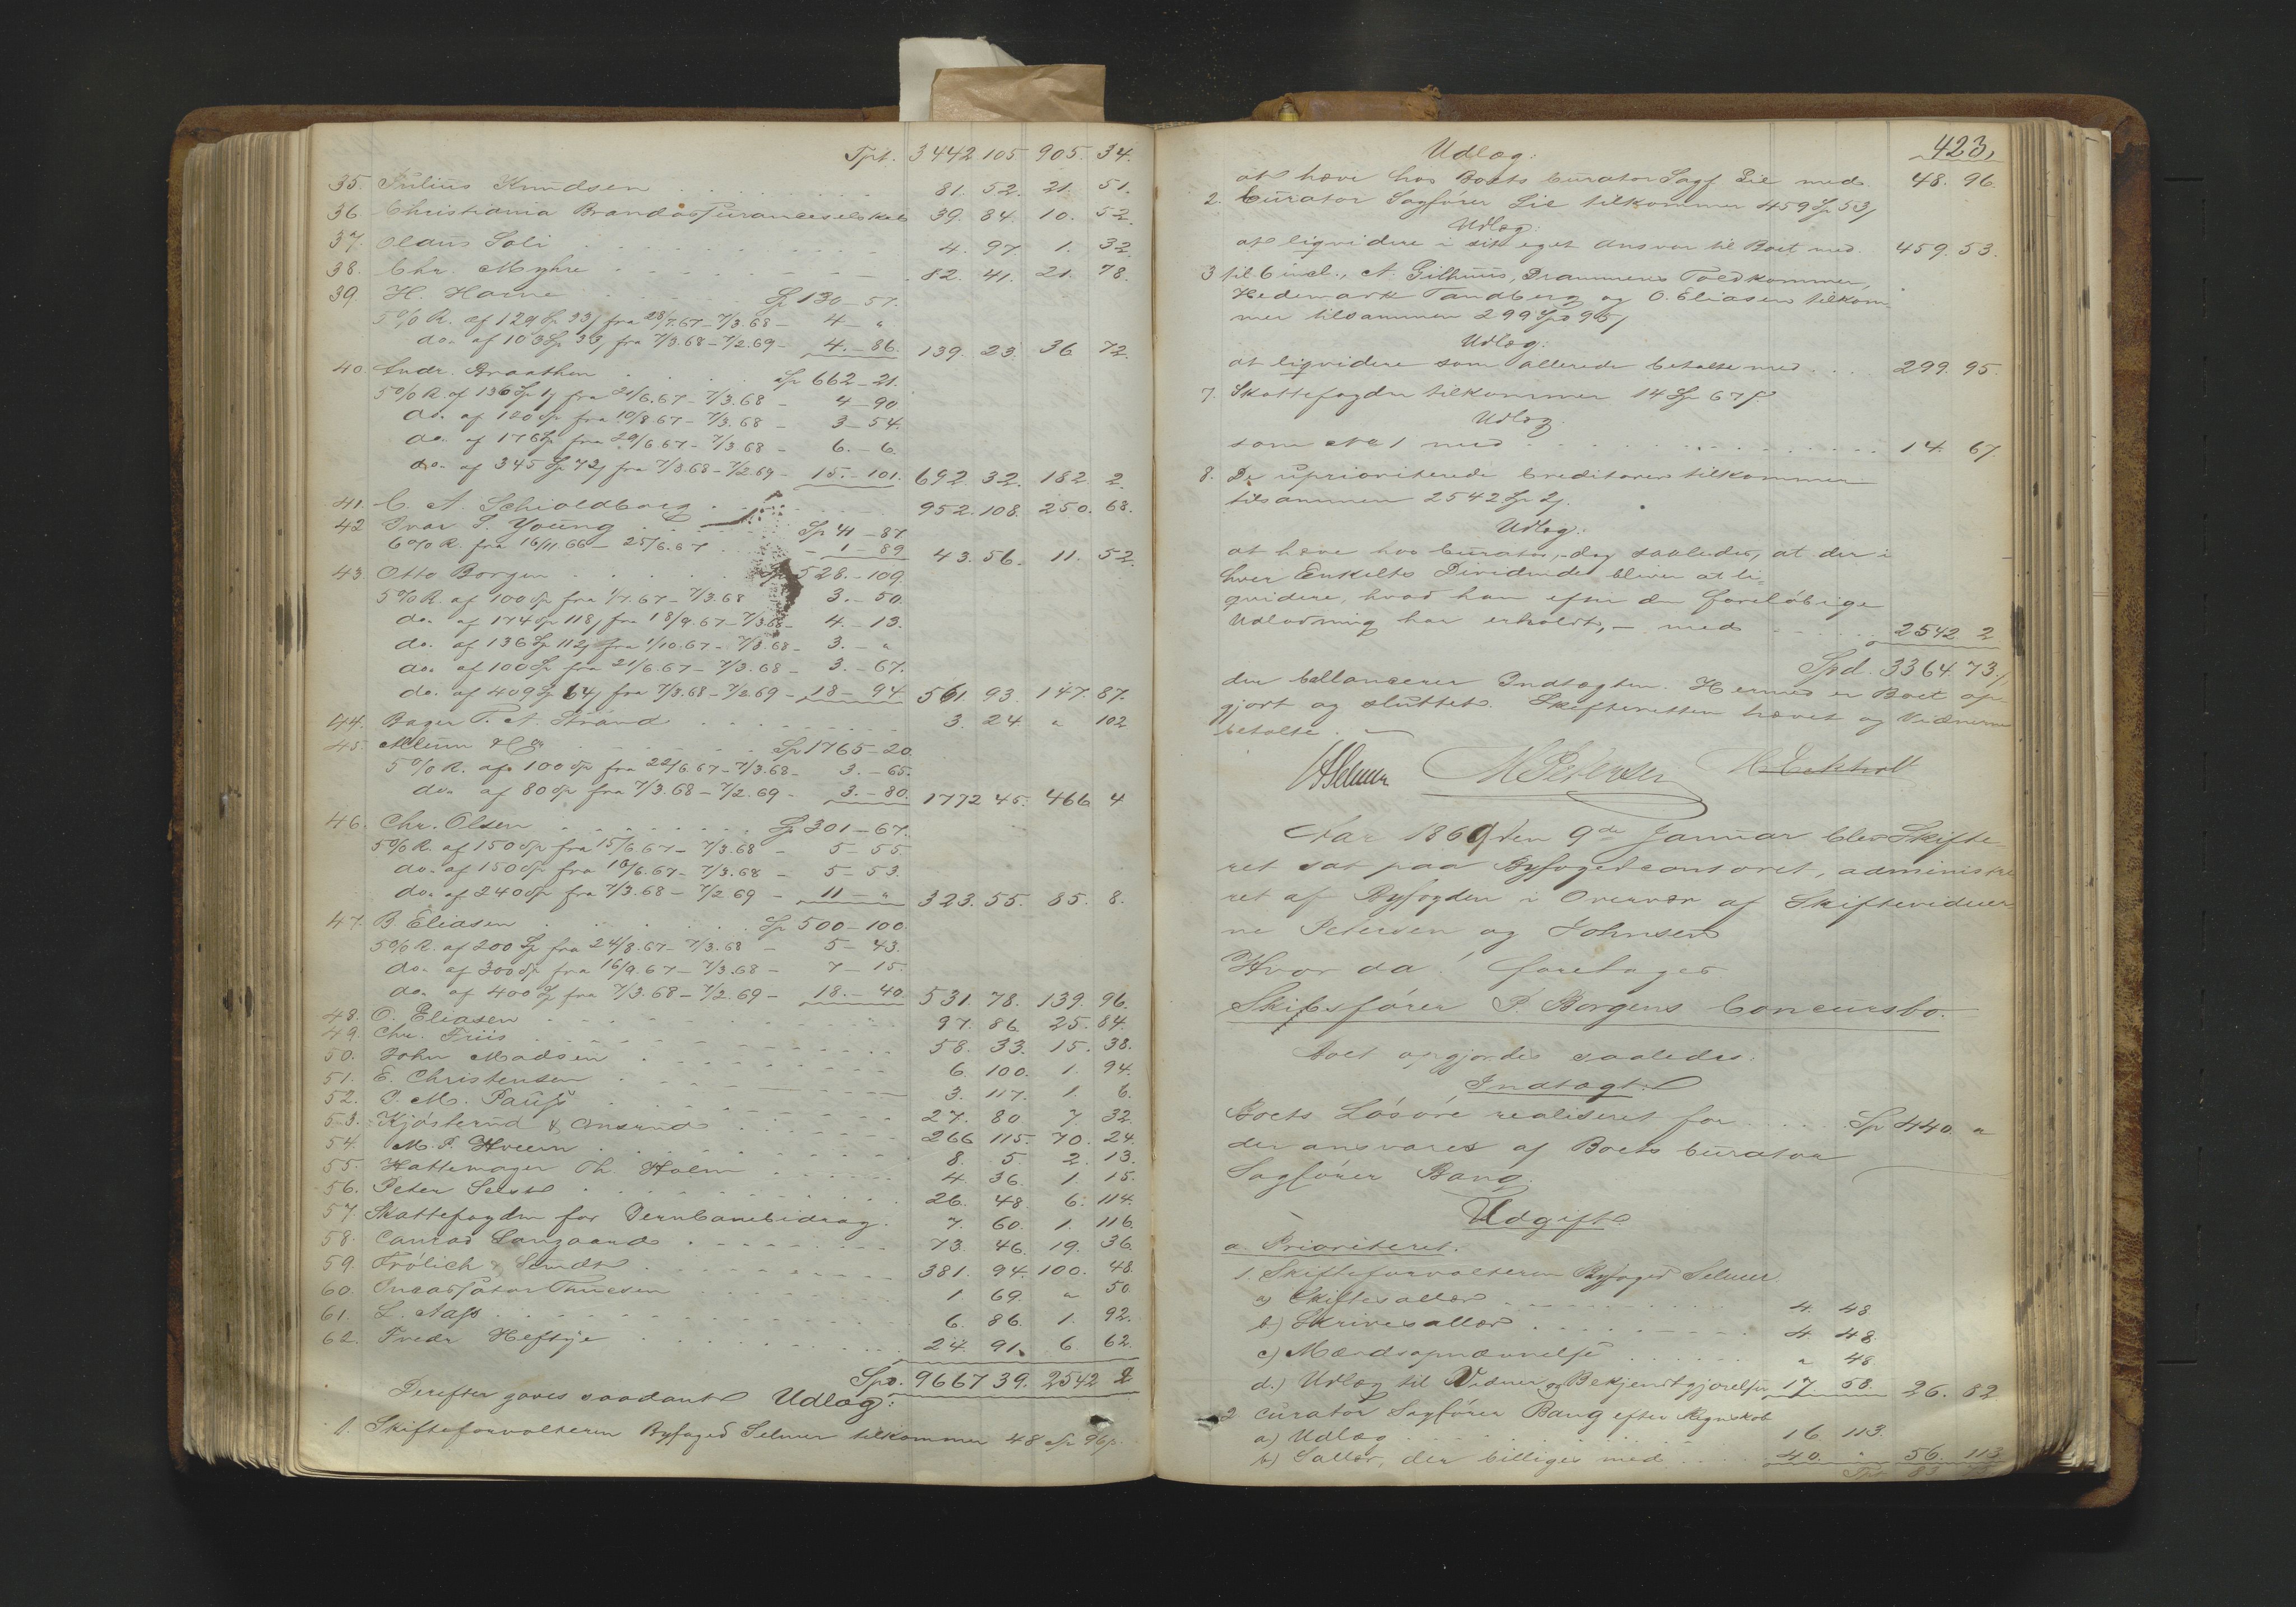 Tpt. 3442. 105. 905. 34.
35. Julius Knudsen . . . . . . 81. 52. 21. 51.
36. Christiania Brandassuranceselskab 39. 84. 10. 52.
37. Olaus Soli . . . . . . 4. 97. 1. 32.
38. Chr. Myhre . . . . . . 82. 41. 21. 78.
39. H. Horne . . . . Sp 130 – 57.
5% R. af 129 Sp 33 f fra 28/7.67 – 7/3.68 – 4 – "
do. af 103 Sp 33 f fra 7/3.68 – 7/2.69 – 4. – 86. 139. 23. 36 72.
40. Andr. Braathen . . . . Sp 662 – 21.
5% R. af 136 Sp 1 f fra 21/6.67 – 7/3.68 – 4 – 90
do. af 120 Sp fra 10/8.67 – 7/3.68 – 3 – 54.
do. af 176 Sp fra 29/6.67 – 7/3.68 – 6. – 6.
do. af 345 Sp 72 f fra 7/3.68 – 7/2.69 – 15. – 101. 692. 32. 182. 2.
41. C. A. Schioldborg . . . . 952. 108. 250. 68.
42. Ivar S. Young . . . Sp 41 – 87
6% R. fra 16/11.66 – 25/6.67 . . – 1 – 89 43. 56. 11. 52.
43. Otto Borgen . . . . Sp 528. – 109.
5% R. af 100 Sp fra 1/7.67 – 7/3.68 3. – 50.
do. af 174 Sp 118 f fra 18/9.67 – 7/3.68 – 4. – 13.
do. af 136 Sp 112 f fra 1/10.67 – 7/3.68 – 3. – "
do. af 100 Sp fra 21/6.67 – 7/3.68 – 3. – 67.
do. af 409 Sp 64 f fra 7/3.68 – 7/2.69 – 18 – 94 561. 93. 147. 87.
44. Bager T. A. Strand . . . . 3. 24. " 102
45. Mün & Co . . . . Sp 1765 – 20.
5% R. af 100 Sp fra 22/6.67 – 7/3.68 – 3. – 65.
do. af 80 Sp fra 7/3.68 – 7/2.69 – 3. – 80. 1772 45. 466 4
46. Chr. Olsen . . . . Sp 301 – 67.
5% R. af 150 Sp fra 15/6.67 – 7/3.68 – 5 – 55
do. af 150 Sp fra 18/6.67 – 7/3.68 – 5 – 53.
do. af 240 Sp fra 7/3.68 – 7/2 69 – 11 – " 323. 55. 85. 8.
47. B. Eliasen . . . . Sp 500 – 100.
5% R. af 200 Sp fra 24/8.67 – 7/3.68 – 5 – 43.
do. af 300 Sp fra 16/9.67 – 7/3.68 – 7 – 15.
do. af 400 Sp fra 7/3.68 – 7/2.69 – 18. – 40. 531. 78. 139. 96.
48. O. Eliasen . . . . 97. 86. 25. 84.
49. Chr. Friis . . . . 58. 33. 15. 38.
50. John Madsen . . . . 6. 100. 1. 94.
51. E. Christensen . . . . 3. 117. 1. 6.
52. P. M. Pauss . . . . 27. 80 7. 32.
53. Kjösterud & Onsrud . . . . 266 115. 70. 24.
54. M. P. Hveem . . . . 8. 5. 2. 13.
55. Hattemager Th. Holm . . . . 4. 36. 1. 15.
56. Peter Selst . . . . 26. 48. 6. 114.
57. Skattefogden for Jernbanebidrag . 7. 60. 1. 116.
58. Conrad Langaard . . . . 73. 46. 19. 36.
59. Frölich & Lindt . . . . 381. 94. 100. 48.
60. Ordassistor Thuesen . . . . 1. 69. " 50.
61. L. Aass . . . . 6. 86. 1. 92.
62. Fredr Heftye . . . . 24. 91. 6. 62.
Spd. 9667 39. 2542 2
Derefter gaves saadant Udlæg:
1. Skifteforvalteren Byfoged Selmer tilkommer 48 Sp 96 f.
423,
Udlæg:
at hæve hos Boets Curator Sagf Lie med 48. 96.
2. Curator Sagförer Lie tilkommer 459 Sp 53 f
Udlæg:
at liqvidere i sit eget Ansvar til Boet med. 459. 53.
3 til 6 incl., A. Gilhuus, Drammens Toldkammer,
Hedemark Tandberg og O. Eliasen tilkom-
mer tilsammen 299 Spd 95 f
Udlæg:
at liqvidere som allerede betalte med . . . 299. 95.
7. Skattefogden tilkommer 14 Sp 67 f.
Udlæg
som No 1 med . . . . 14. 67.
8. De uprioriterede Creditorer tilkommer
tilsammen 2542 Sp 2 f.
Udlæg:
at hæve hos Curator, – dog saaledes, at der i
hver Enkelts Dividende bliver at li-
qvidere, hvad han efter den foreløbige
Udlodning har erholdt, – med . . . 2542 2
Spd. 3364 73.
der ballancerer Indtægten. Hermed er Boet op-
gjort og sluttet. Skifteretten hævet og Vidnerne
betalte.
Selmer M Petersen H. Eckholt
Aar 1869 den 9de Januar blev Skifte-
ret sat paa Byfogedcontoret, administre
ret af Byfogden i Overvær af Skiftevidner
ne Petersen og Johnsen
Hvor da! foretoges
Skibsförer P. Borgens Concursbo.
Boet opgjordes saaledes:
Indtægt:
Boets Lösöre realiseret for . . . Sp 440. "
der ansvares af Boets Curator
Sagförer Bang.
Udgift
a. Prioriteret.
1. Skifteforvalteren Byfoged Selmer.
a) Skiftesallær . . . . 4. 48.
b.) Skrivesallær . . . . 4. 48.
c) Mændsopnævnelse . . . . " 48.
d.) Udlæg til Vidner og Bekjendtgjørelser 17. 58. 26. 82
2 Curator Sagförer Bang efter Regnskab
a) Udlæg . . . . 16 113.
b) Sallær, der billiges med . . . 40. " 56. 113